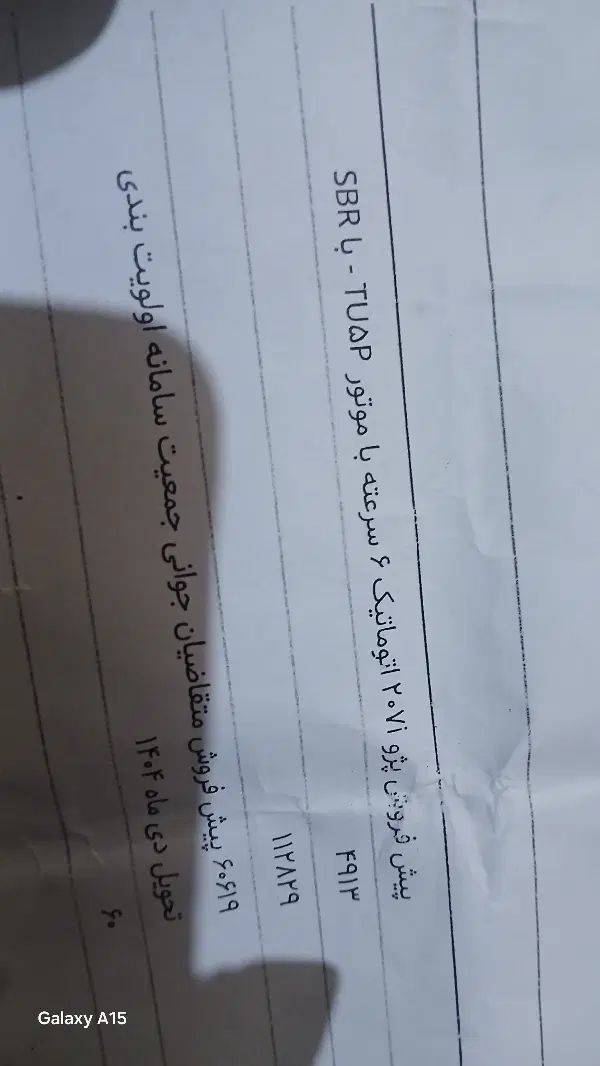 پیش فروش پژو ۲۰۷i اتوماتیک ۶ سرعته با موتور TU۵P - با SBR
۴۹۱۳
۱۱۲۸۲۹
۶۰۶۱۹ پیش فروش متقاضیان جوانی جمعیت سامانه اولویت بندی
تحویل دی ماه ۱۴۰۴
۶۰
Galaxy A15